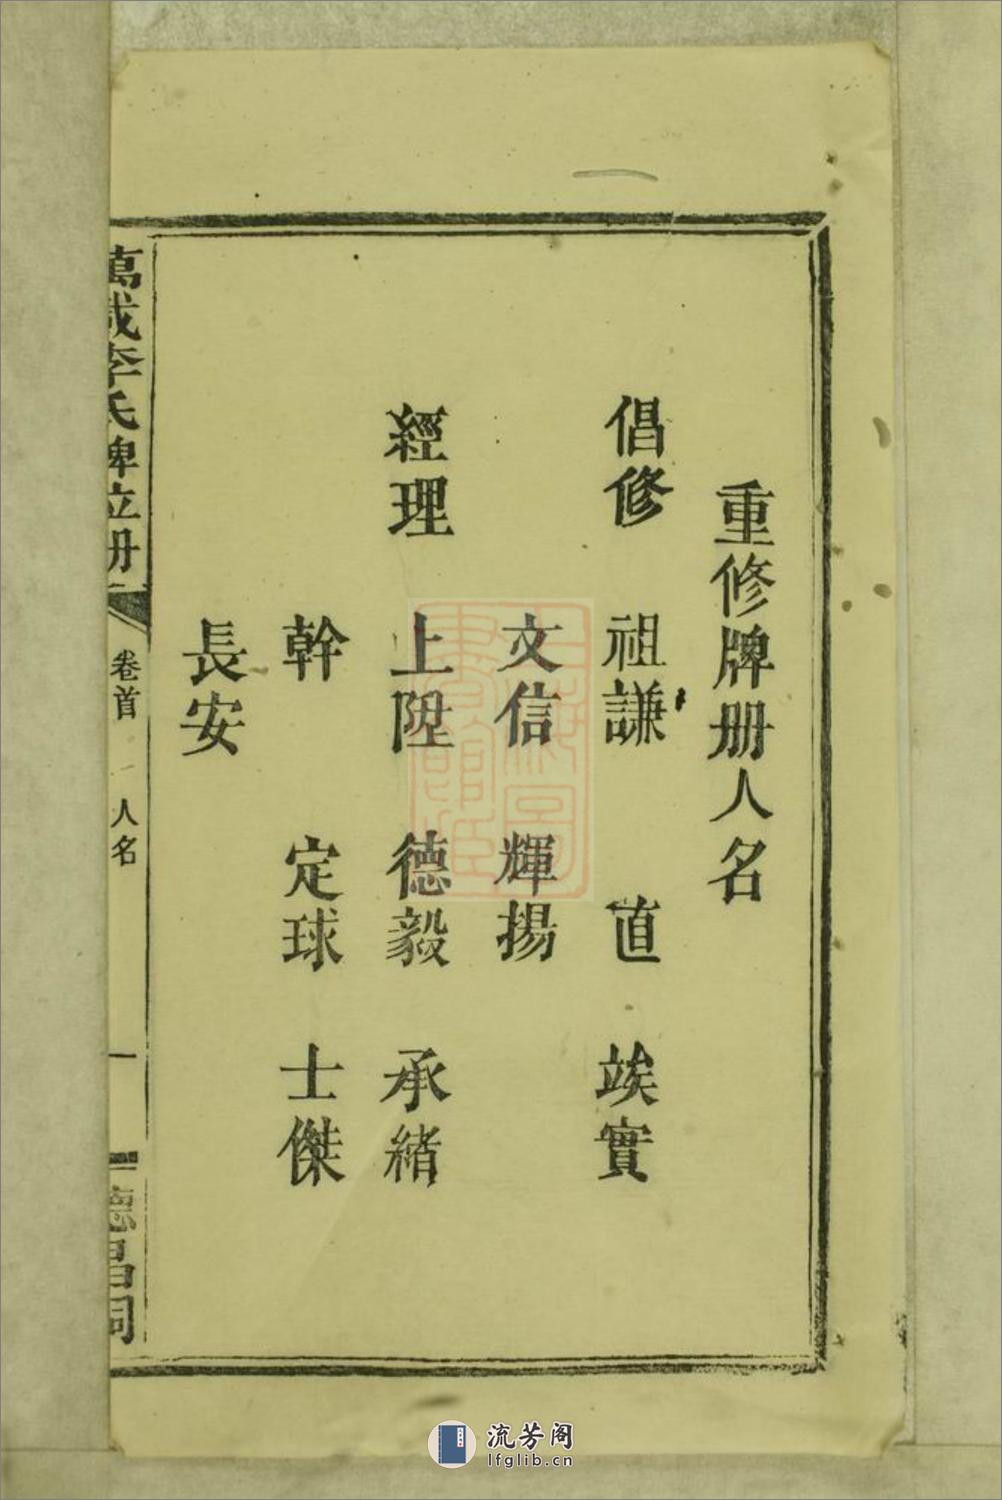 重修牌册人名
倡修 祖謙 直 竢實
文信 輝揚
經理 上陞 德毅 承緒
幹 定球 士傑
長安
萬載李氏牌位册 卷首 人名 一 德昌祠
上海圖書館藏
流芳阁
lfglib.cn